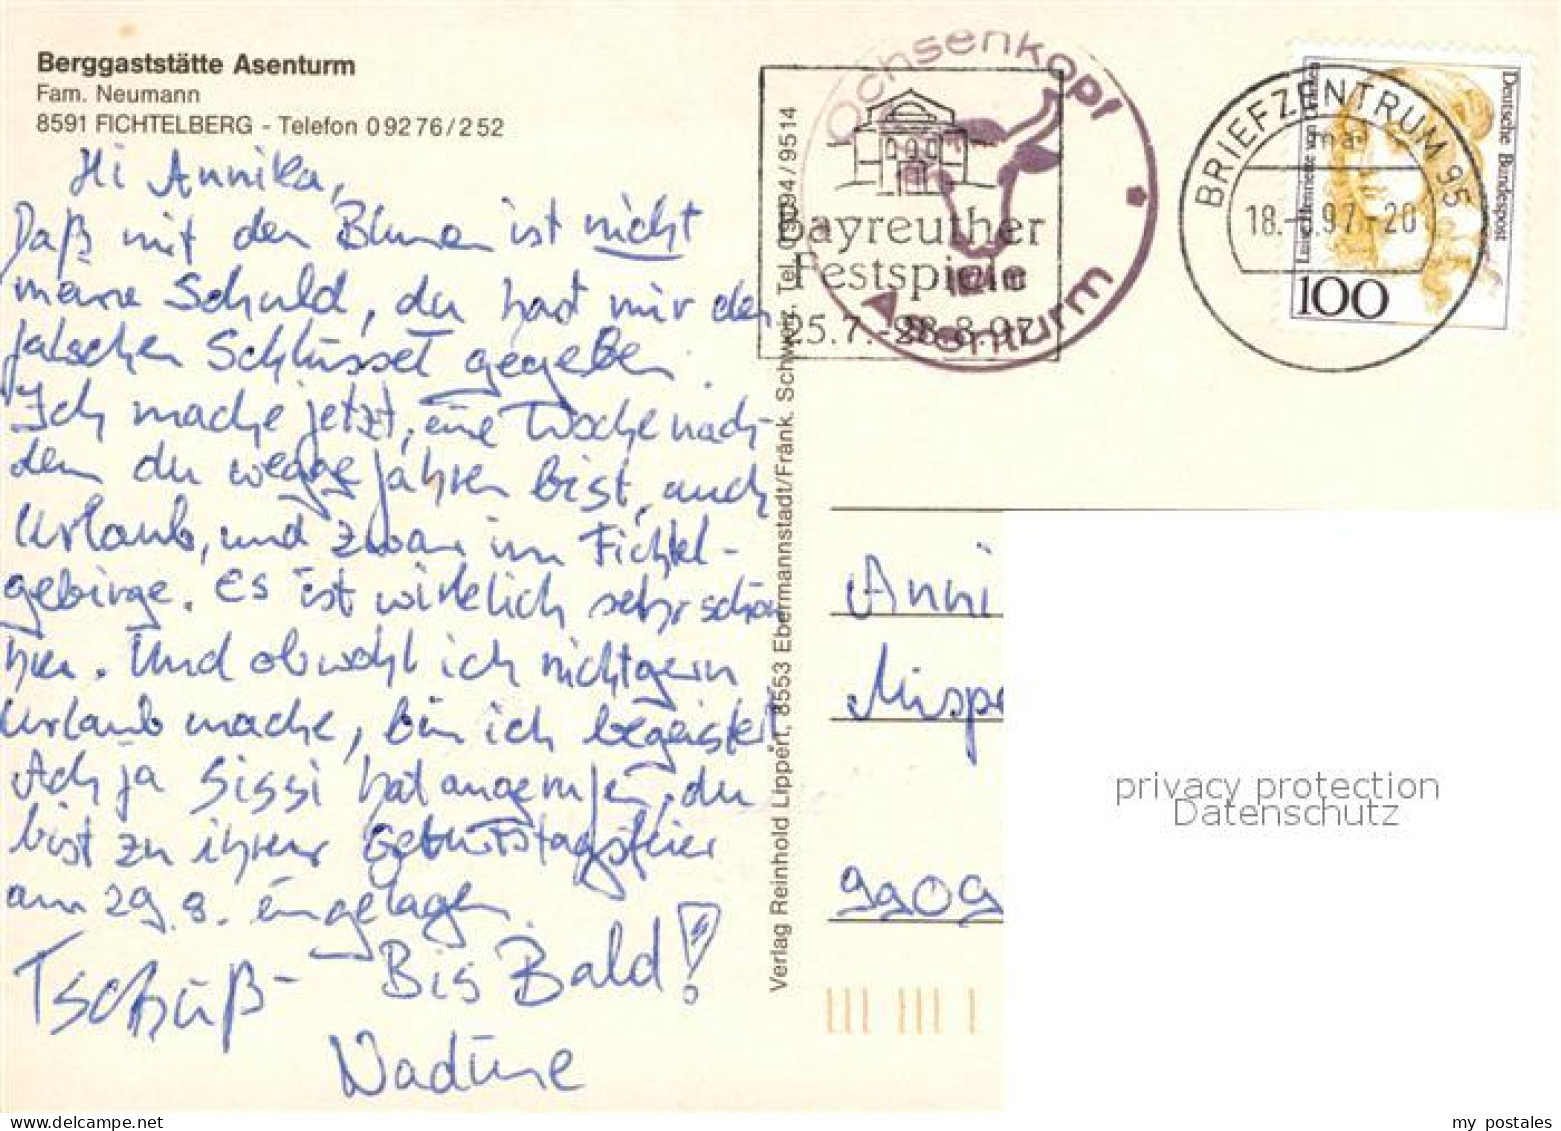 Berggaststätte Asenturm
Fam. Neumann
8591 FICHTELBERG - Telefon 09276/252
Hi Annika,
Daß mit den Blumen ist nicht
meine Schuld, du hast mir den
falschen Schlüssel gegeben.
Ich mache jetzt, eine Woche nach-
dem du weggefahren bist, auch
Urlaub, und zwar im Fichtel-
gebirge. Es ist wirklich sehr schön
hier. Und obwohl ich nicht gern
Urlaub mache, bin ich begeistert
Ach ja Sissi hat angerufen, du
bist zu ihrer Geburtstagsfeier
am 29.8. eingelagen.
Tschüß- Bis Bald!
Nadine
Verlag Reinhold Lippert, 8553 Ebermannstadt/Fränk. Schweiz, Tel. 09194/9514
Ochsenkopf
Asenturm
Bayreuther
Festspiele
25.7.-28.8.97
BRIEFZENTRUM 95
18.-8.97-20
Deutsche Bundespost
Luise Henriette von Oranien
100
Anni
Mispe
9909
privacy protection
Datenschutz
my postales